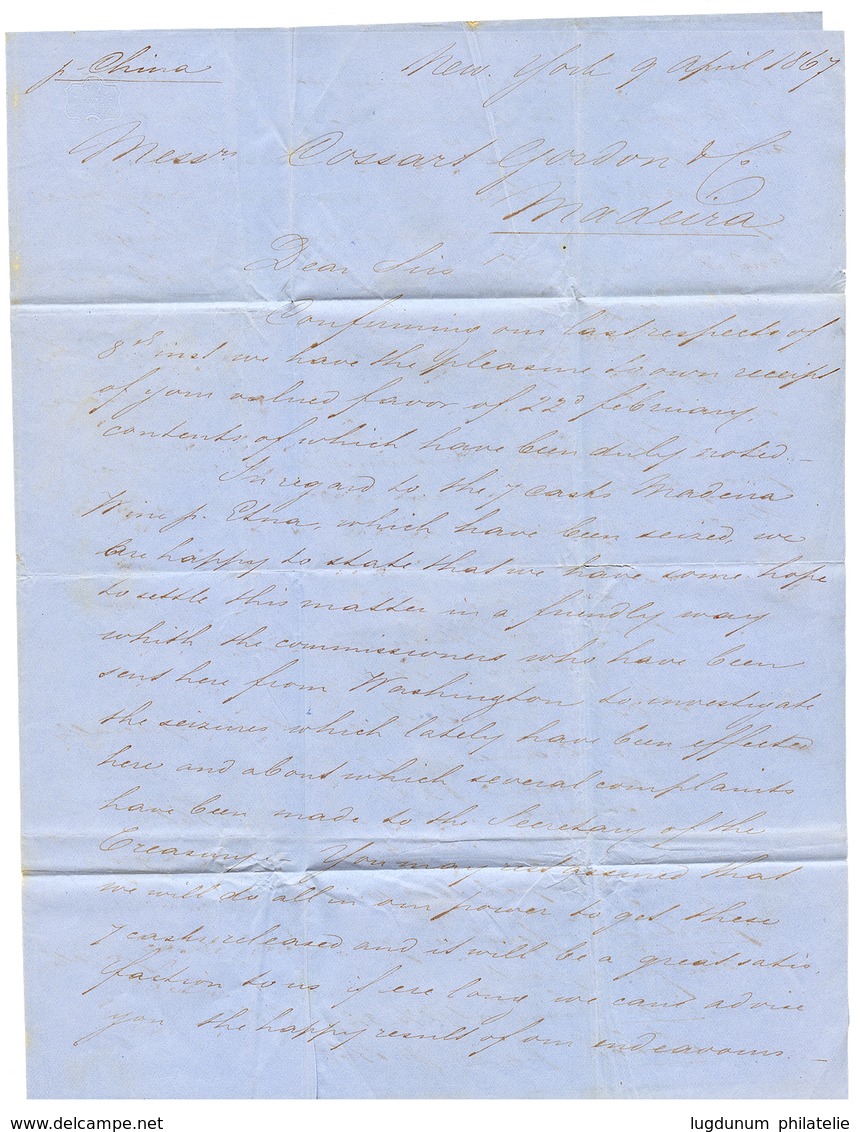 p. China
New. York 9 April 1867
Messrs Cossart Gordon & Co.
Madeira
Dear Sirs
Confirming our last respects of
8th inst we have the pleasure to own receipt
of your valued favor of 22d february,
contents of which have been duly noted. –
In regard to the 7 casks Madeira
Wine p. Etna, which have been seized, we
are happy to state that we have some hope
to settle this matter in a friendly way
whith the commissioners who have been
sent here from Washington to investigate
the seizures which lately have been effected
here and about which several complaints
have been made to the Secretary of the
Treasury. – You may rest assured that
we will do all in our power to get these
7 casks released and it will be a great satis.
faction to us if ere long we can advise
you the happy result of our endeavours. –
www.delcampe.net
lugdunum philatelie